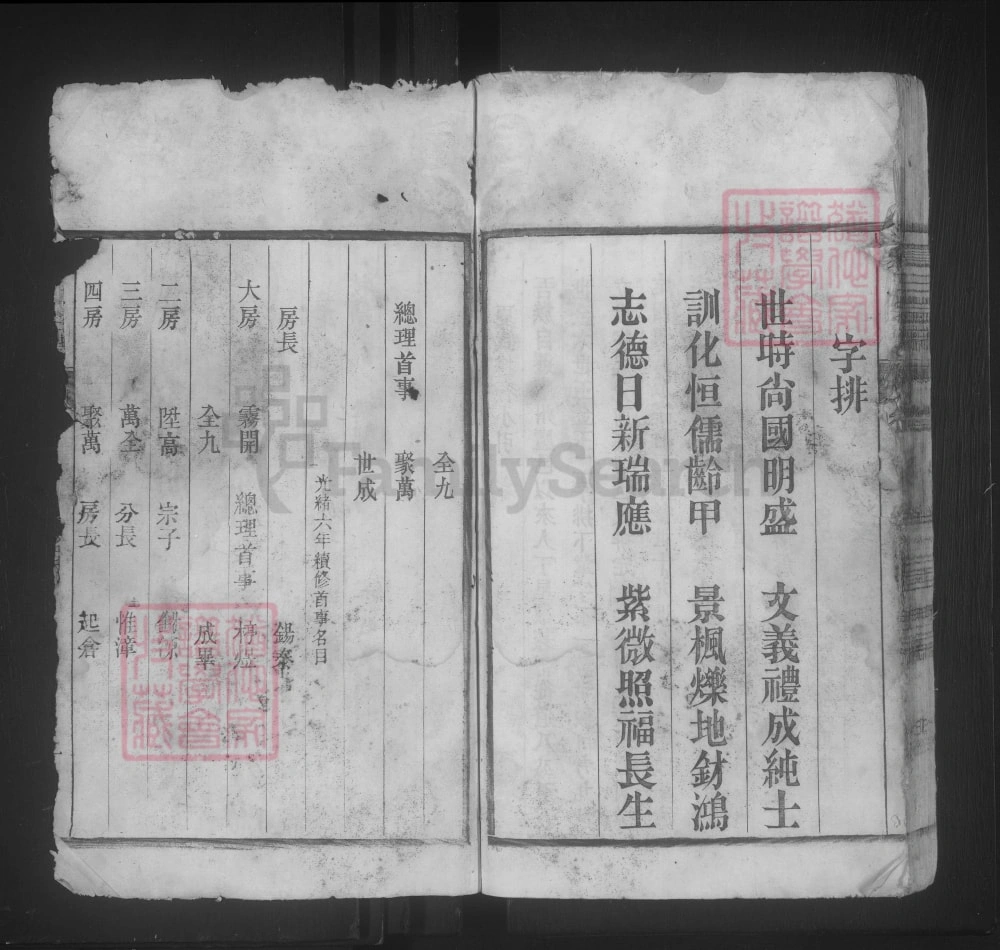 字排
世時尙國明盛 文義禮成純士
訓化恒儒齡甲 景楓爍地財鴻
志德日新瑞應 紫微照福長生
全九
總理首事 聚萬
世成
光緒六年續修首事名目
房長 錫泰
大房 霧開 總理首事
全九 成畢
二房 陞高 宗子
三房 萬全 分長 惟漳
四房 聚萬 房長 起倉
FamilySearch